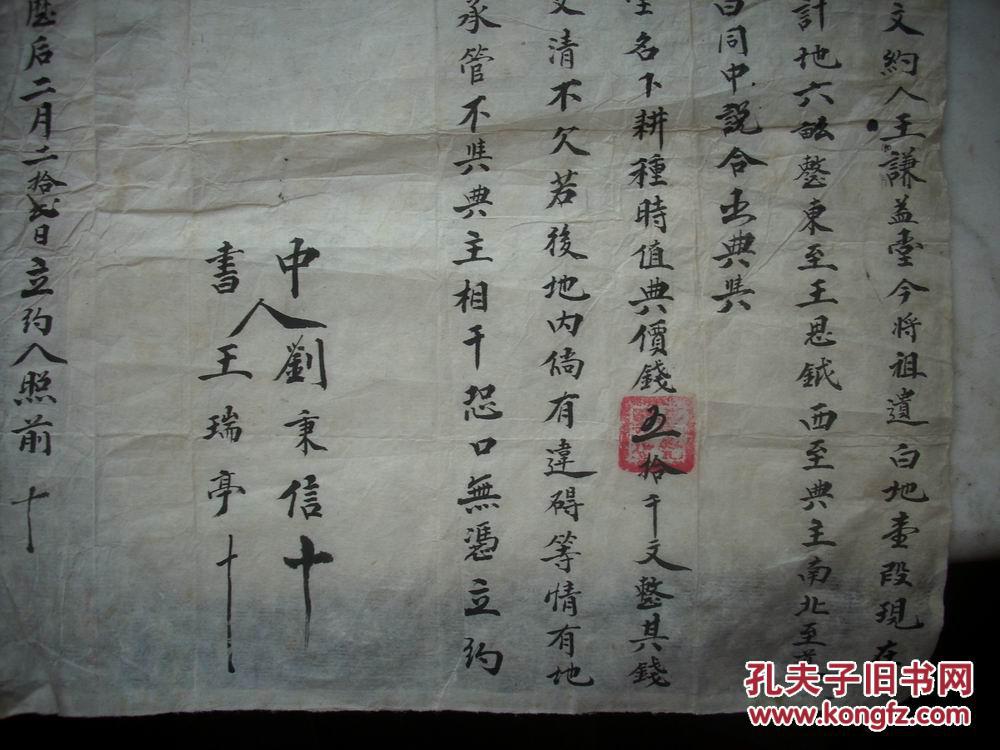 文約人王謙益堂今將祖遺白地壹段現在
計地六畝整東至王恩鉞西至典主南北至
白同中說合出典與
名下耕種時值典價錢五拾千文整其錢
交清不欠若後地内倘有違碍等情有地
承管不與典主相干恐口無憑立約
中人劉秉信十
書人王瑞亭十
歷后二月二拾弍日立約人照前十
孔夫子旧书网
www.kongfz.com